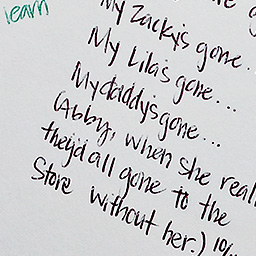 learn
My Zacky's gone...
My Lila's gone...
My daddy's gone...
(Abby, when she
they'd all gone to the
Store without her.) 10/